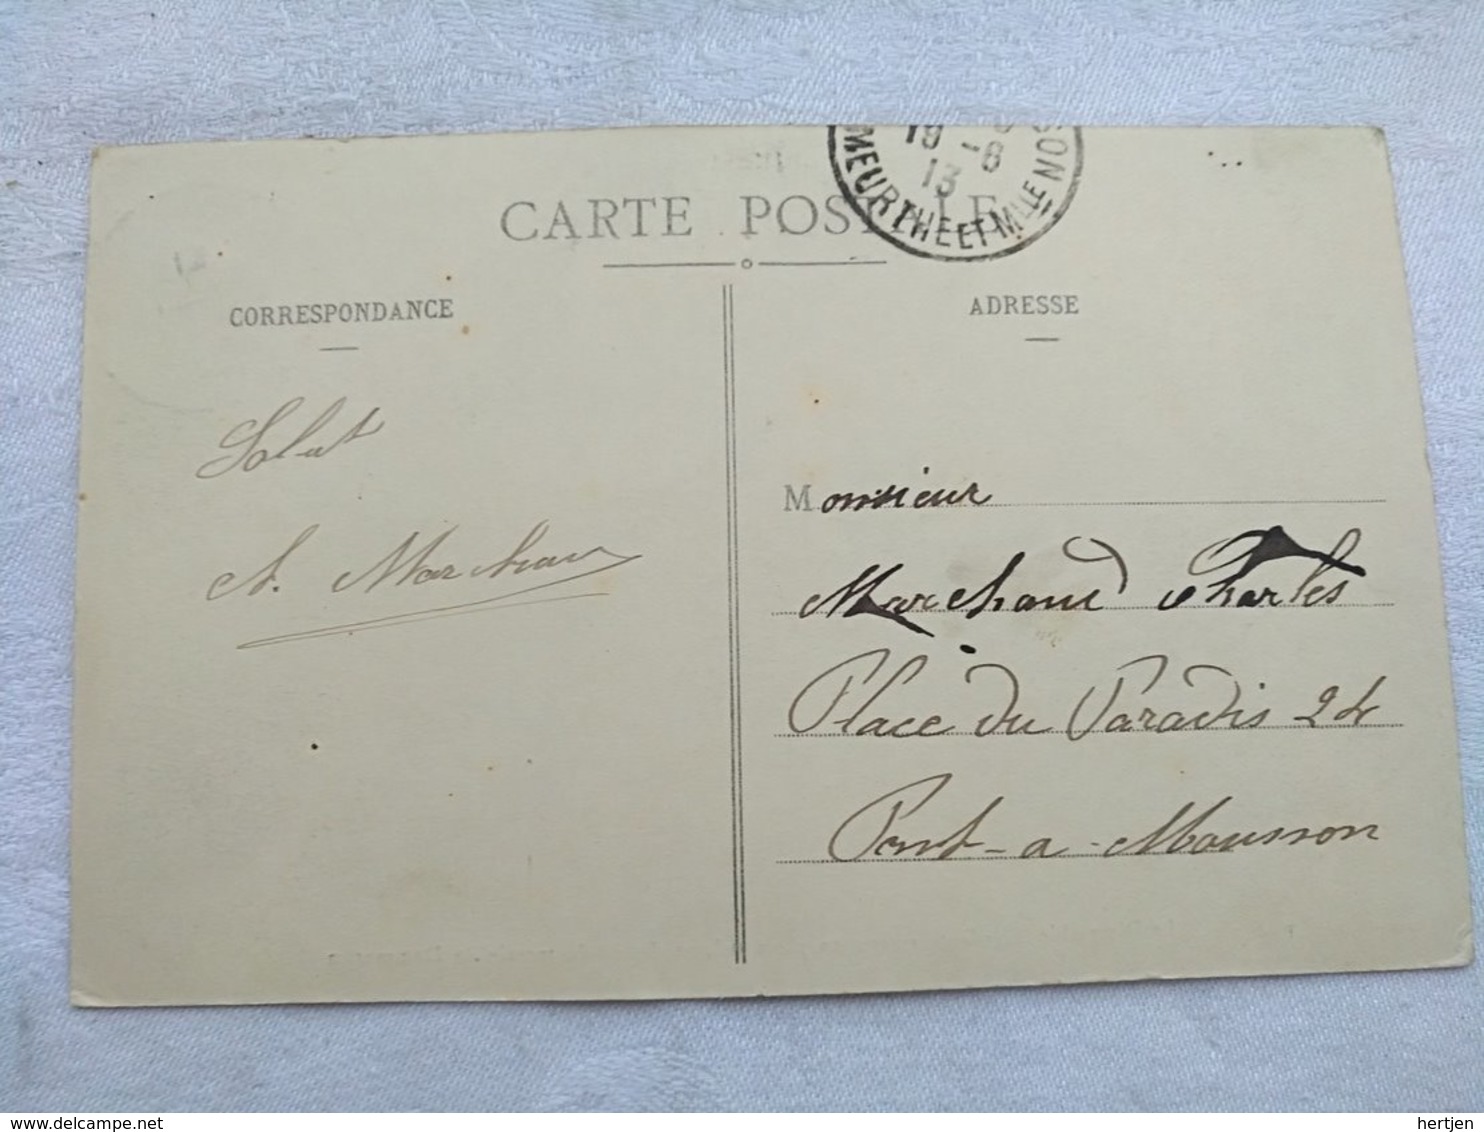 19 -8
13
MEURTHE ET MLLE
CARTE POSTALE
CORRESPONDANCE
ADRESSE
Salut
A. Marchand
Monsieur
Marchand Charles
Place du Paradis 24
Pont-a-Mousson
delcampe.net
hertjen